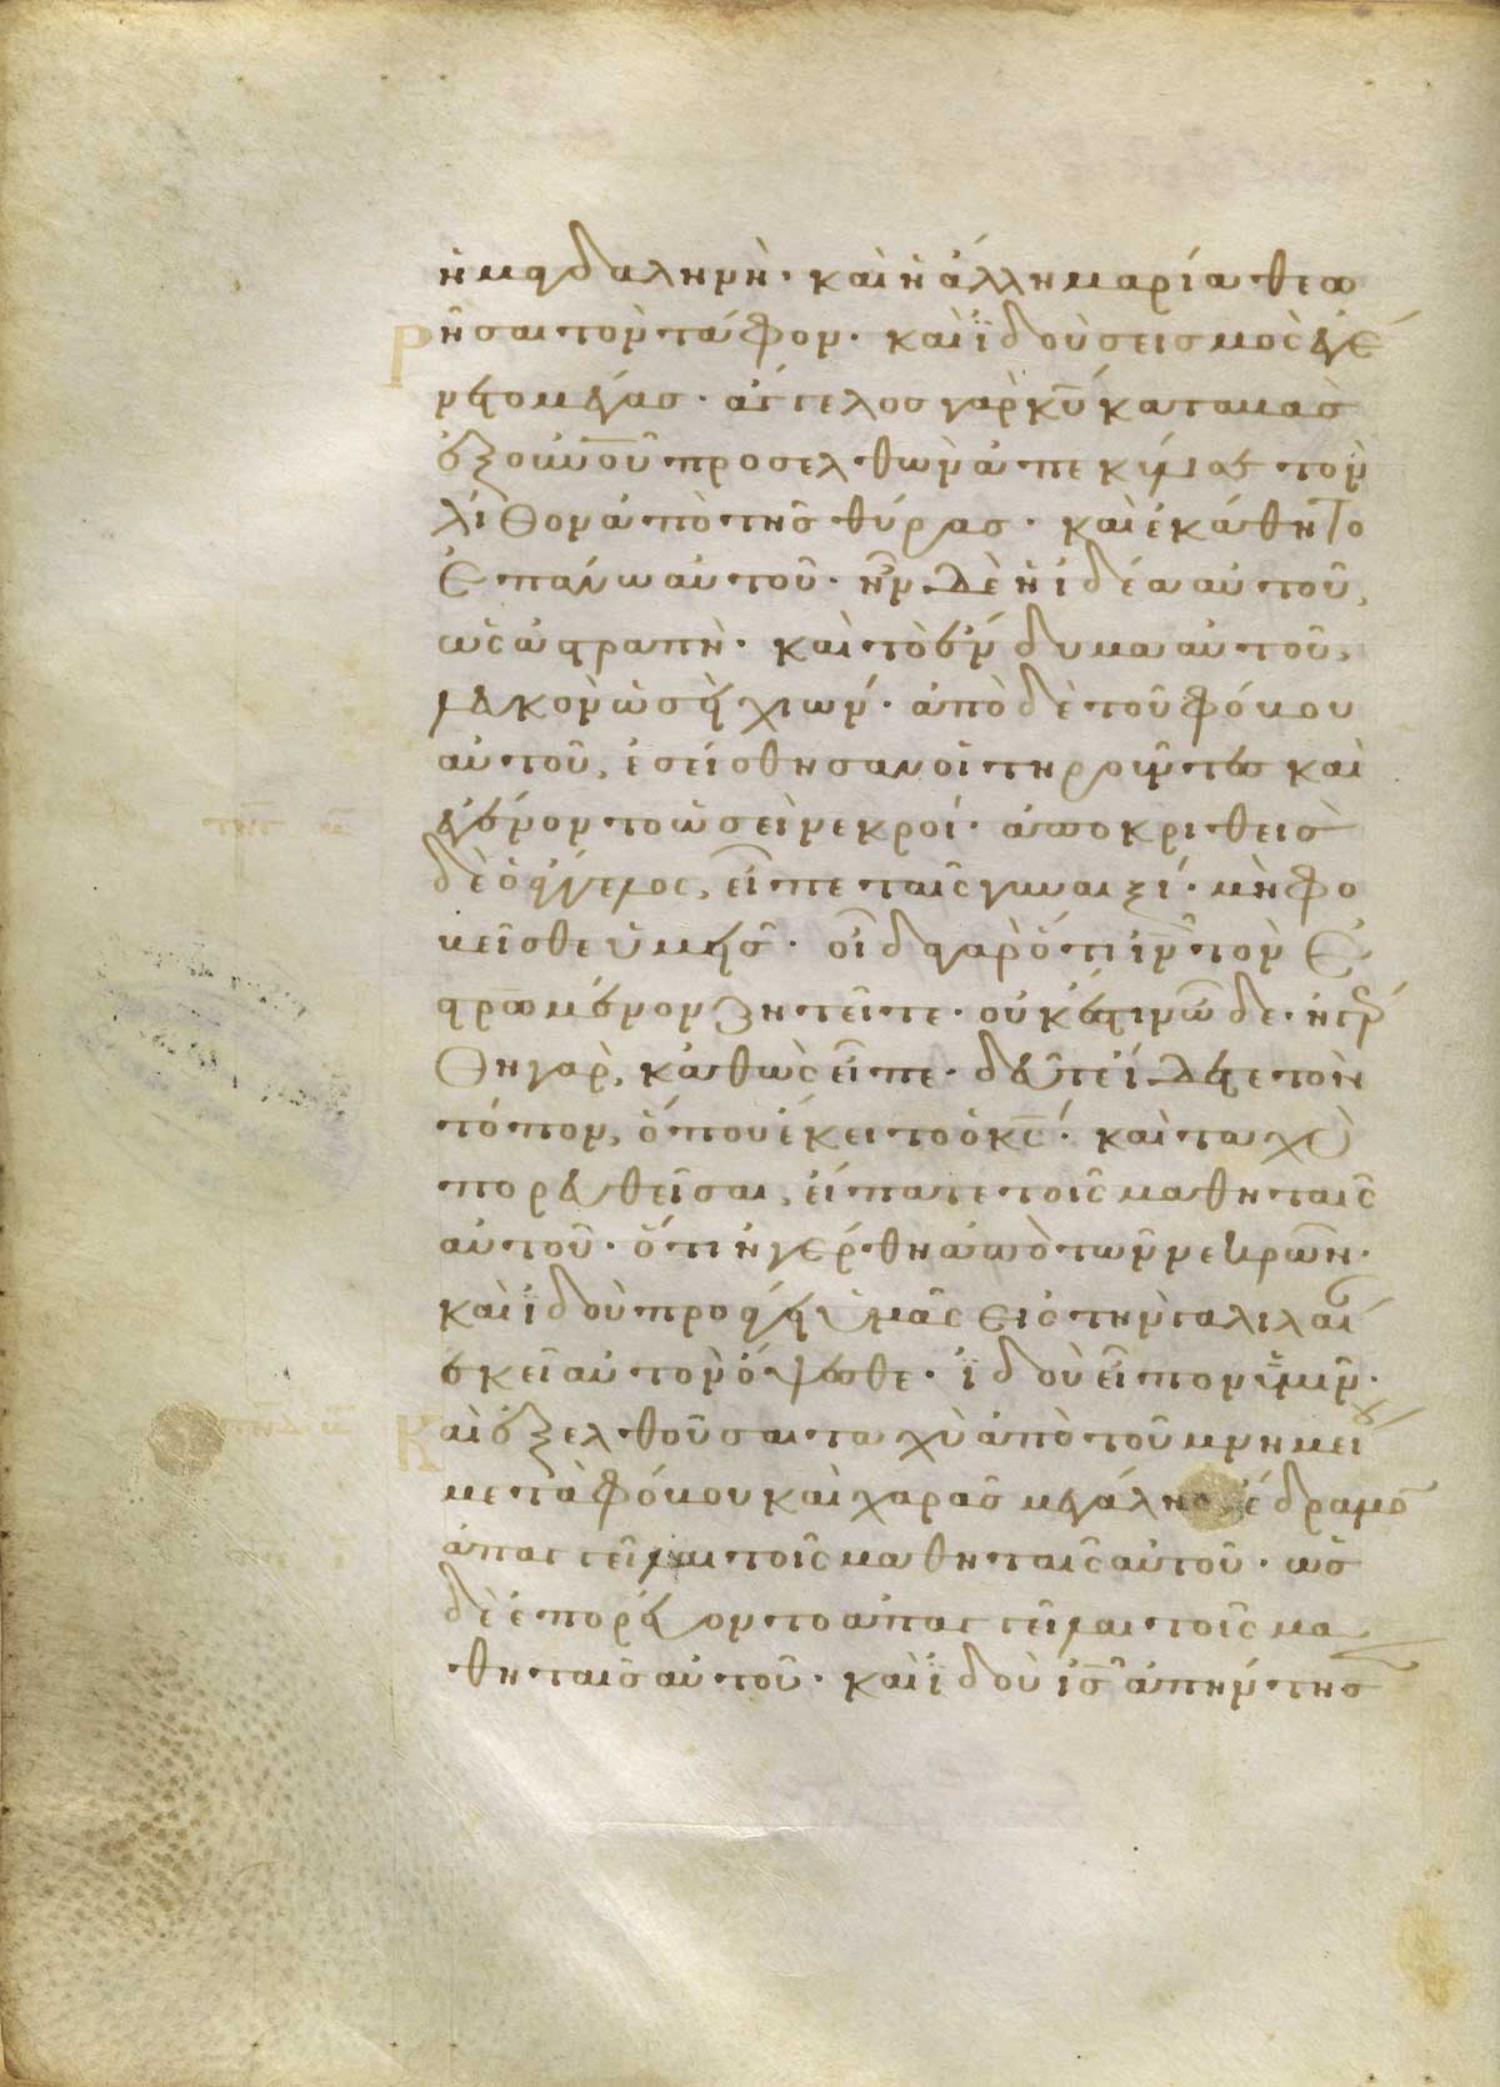 ἡ μαγδαληνὴ· καὶ ἡ ἄλλη μαρία θεω
ρῆσαι τὸν τάφον· καὶ ἰδοὺ σεισμὸς ἐγέ
νετο μέγας· ἄγγελος γὰρ κ̅υ̅ καταβὰς
ἐξ ο̅υ̅ν̅ο̅υ̅ προσελθὼν ἀπεκύλισε τὸν
λίθον ἀπὸ τῆς θύρας· καὶ ἐκάθητο
ἐπάνω αὐτοῦ· ἦν δὲ ἡ ἰδέα αὐτοῦ,
ὡς ἀστραπὴ· καὶ τὸ ἔνδυμα αὐτοῦ,
λευκὸν ὡσεὶ χιών· ἀπὸ δὲ τοῦ φόβου
αὐτοῦ, ἐσείσθησαν οἱ τηροῦντες καὶ
ἐγένοντο ὡσεὶ νεκροί· ἀποκριθεὶς
δὲ ὁ ἄγγελος, εἶπε ταῖς γυναιξί· μὴ φο
βεῖσθε ὑμεῖς· οἶδα γὰρ ὅτι ι̅ν̅ τὸν ἐ
σταυρωμένον ζητεῖτε· οὐκ ἔστιν ὧδε· ἠγέρ
θη γὰρ, καθὼς εἶπε· δεῦτε ἴδετε τὸν
τόπον, ὅπου ἔκειτο ὁ κ̅ς̅· καὶ ταχὺ
πορευθεῖσαι, εἴπατε τοῖς μαθηταῖς
αὐτοῦ· ὅτι ἠγέρθη ἀπὸ τῶν νεκρῶν·
καὶ ἰδοὺ προάγει ὑμᾶς εἰς τὴν γαλιλαί
ἐκεῖ αὐτὸν ὄψεσθε· ἰδοὺ εἶπον ὑμῖν·
καὶ ἐξελθοῦσαι ταχὺ ἀπὸ τοῦ μνημείου
μετὰ φόβου καὶ χαρᾶς μεγάλης, ἔδραμον
ἀπαγγεῖλαι τοῖς μαθηταῖς αὐτοῦ· ὡς
δὲ ἐπορεύοντο ἀπαγγεῖλαι τοῖς μα
θηταῖς αὐτοῦ· καὶ ἰδοὺ ι̅ς̅ ἀπήντησ